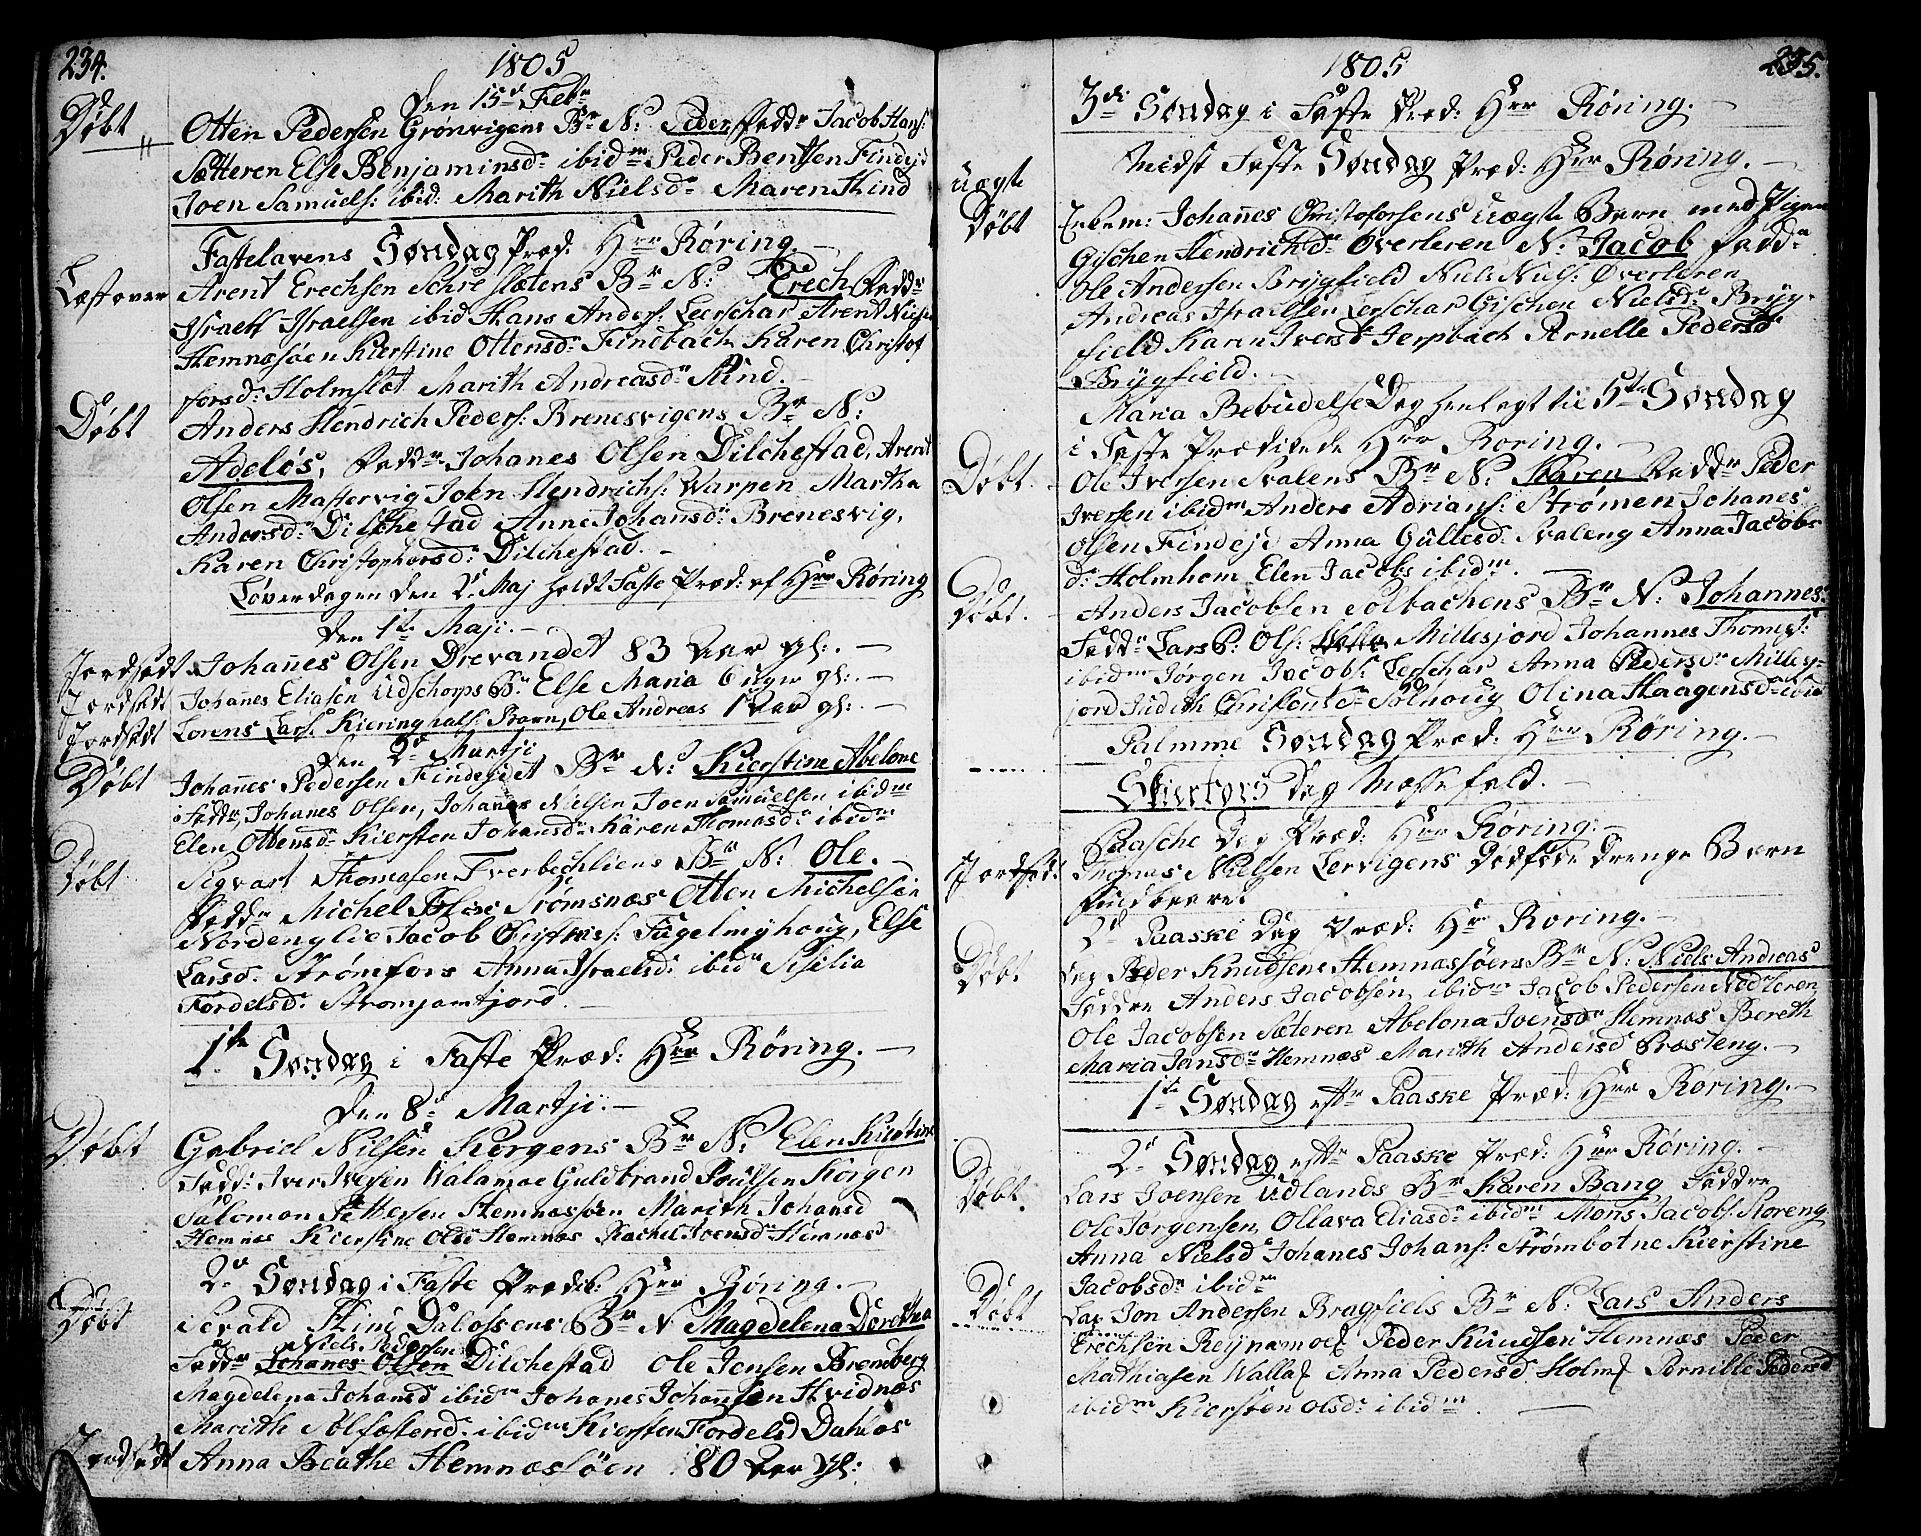 234.
1805
Den 15de Febr
Døbt
Otten Pedersen Grønvigens Br N: Peder Fadd: Jacob Hans:
Sætteren Else Benjaminsd: ibidm Peder Bentsen Findejd
Joen Samuels: ibid: Marith Nielsd: Maren Hind
Fastelavens Søndag Præd: Hrr Røring.
Læst over
Arent Erechsen Schreslætens Br N: Erech Fadd:
Israel Israelsen ibid Hans Anders: Leerschar Arent Niels
Hemnæsøen Kierstine Ottensd: Finebach Karen Christof
forsd: Holmslet Marith Andreasd: Rind.
Døbt
Anders Hendrich Peders: Brenesvigens Br N:
Adelös, Fadd: Johanes Olsen Dilchestad, Arent
Olsen Mastervig Joen Hendrichs: Warpen Martha
Andersd: Dilschestad Anne Johansd: Brenesvig,
Karen Christophersd: Dilchestad.
Løverdagen den 2d Maj holdt Faste Præd: af Hrr Røring
Den 1te Maji.
Jordfædt Johannes Olsen Drevandet 83 Aar gl:.
Jordfædt Johannes Eliasen Udschorps Br Else Maria 6 uger gl:.
Jordfædt Lorens Lars: Kieringhals: Barn, Ole Andreas 1 Aar gl:.
Den 2d Martji
Døbt
Johannes Pedersen Findejdet Br N: Kierstine Abelone
Fadd: Johanes Olsen, Johanes Nielsen Joen Samuelsen ibidm
Elen Ottensd: Kiersten Johansd: Karen Thomasd: ibidm
Døbt
Sigvart Thomasen Tverbechliens Br N: Ole.
Fadd: Michel Strømsnæs Otten Michelsen
Nordenglie Jacob Fugelmyhoug, Else
Larsd: Strømfors Anna Israelsd: ibidm Sisilia
Fordelsd: Strømfors.
1te Søndag i Faste Præd: Hrr Røring.
Den 8d Martji.
Døbt
Gabriel Nilsen Korgens Br N: Elen Kirstine
Fadd: Iver Ivesen Walamoe Guldbrand Poulsen Korgen
Salomon Pettersen Hemnæssøen Marith Johansd
Hemnes Kierstine Olsd Hemnes Rachel Joensd Hemnæs
2d Søndag i Faste Prædik: Hrr Røring.
Døbt
Hind Dalossens Br N Magdelena Dorethea
Niels Pedersen
Fadd: Johanes Olsen Dilchestad Ole Jensen Bremberg
Magdelena Johansd ibidm Johanes Johannsen Hvidnæs
Marith Solfæstersd: ibidm Kiersten Fordelsd Dahlaas
Jordfædt Anna Beathe Hemnæssøen 80 Aar gl:
235.
1805
3de Søndag i Faste Præd: Hrr Røring.
Midt Faste Søndag Præd: Hrr Røring.
uægte
Døbt
Johannes Christofersens uægte Barn med Pigen
Gischen Hendrichsd: Overleren N: Jacob Fadd:
Ole Andersen Brygfield Niels Niels: Øverleren
Andreas Israelsen Lerschar Gischen Nielsd: Bryg-
field Karen Iversd Jerpbach Pernelle Pedersd:
Brygfield.
Maria Bebudelse Dag henlagt til 5te Søndag
i Faste Prædikede Hrr Roring.
Døbt.
Ole Iversen Svalens Br N: Karen Fadd: Peder
Iversen ibidm Anders Adrians: Strømen Johanes
Olsen Findejd Anna Gullesd: Svaleng Anna Jacobs
d: Holmhem Elen Jacobs ibidm.
Døbt.
Anders Jacobsen Solbachens Br N: Johannes
Fadd: Lars P: Ols: Millesjord Johannes Thomes:
ibidm Jørgen Jacobs: Lerschar Anna Pedersd: Milles-
jord Judith Solhoug Olina Haagensd: ibid
Palmme Søndag Præd: Hrr Røring.
Skiertors Dag Messefald.
Paasche Dag Præd: Hrr Røring:
Jordfæd: Thomas Nielsen Lervigens Dødfødte Drenge Barn
fuldbaaret
2d Paaske Dag Præd: Hrr Roring.
Døbt
Peder Knudsens Hemnæssøens Br N: Niels Andreas
Faddre Anders Jacobsen ibidm Jacob Pedersen Nedleren
Ole Jacobsen Sæteren Abelona Ivensd: Hemnæs Bereth
Maria Jansd: Hemnæs Marith Andersd Præsteng.
1te Søndag eftr Paaske Præd: Hrr Roring.
2d Søndag eftr Paaske Præd: Hrr Røring.
Døbt.
Lars Joensen Udlands Br Karen Bang Faddre
Ole Jørgensen, Ollava Eliasd: ibidm Mons Jacobs: Koreng
Anna Nielsd Johanes Johans: Strømbotne Kierstine
Jacobsd: ibidm
Døbt
Jon Andersen Bragfiels Br N: Lars Anders
Erechsen Reynamoe Peder Knudsen Hemnæs Peder
Mathiasen Walla Anna Pedersd Holm Pernille Pedersd
ibidm Kiersten Olsd: ibidm.